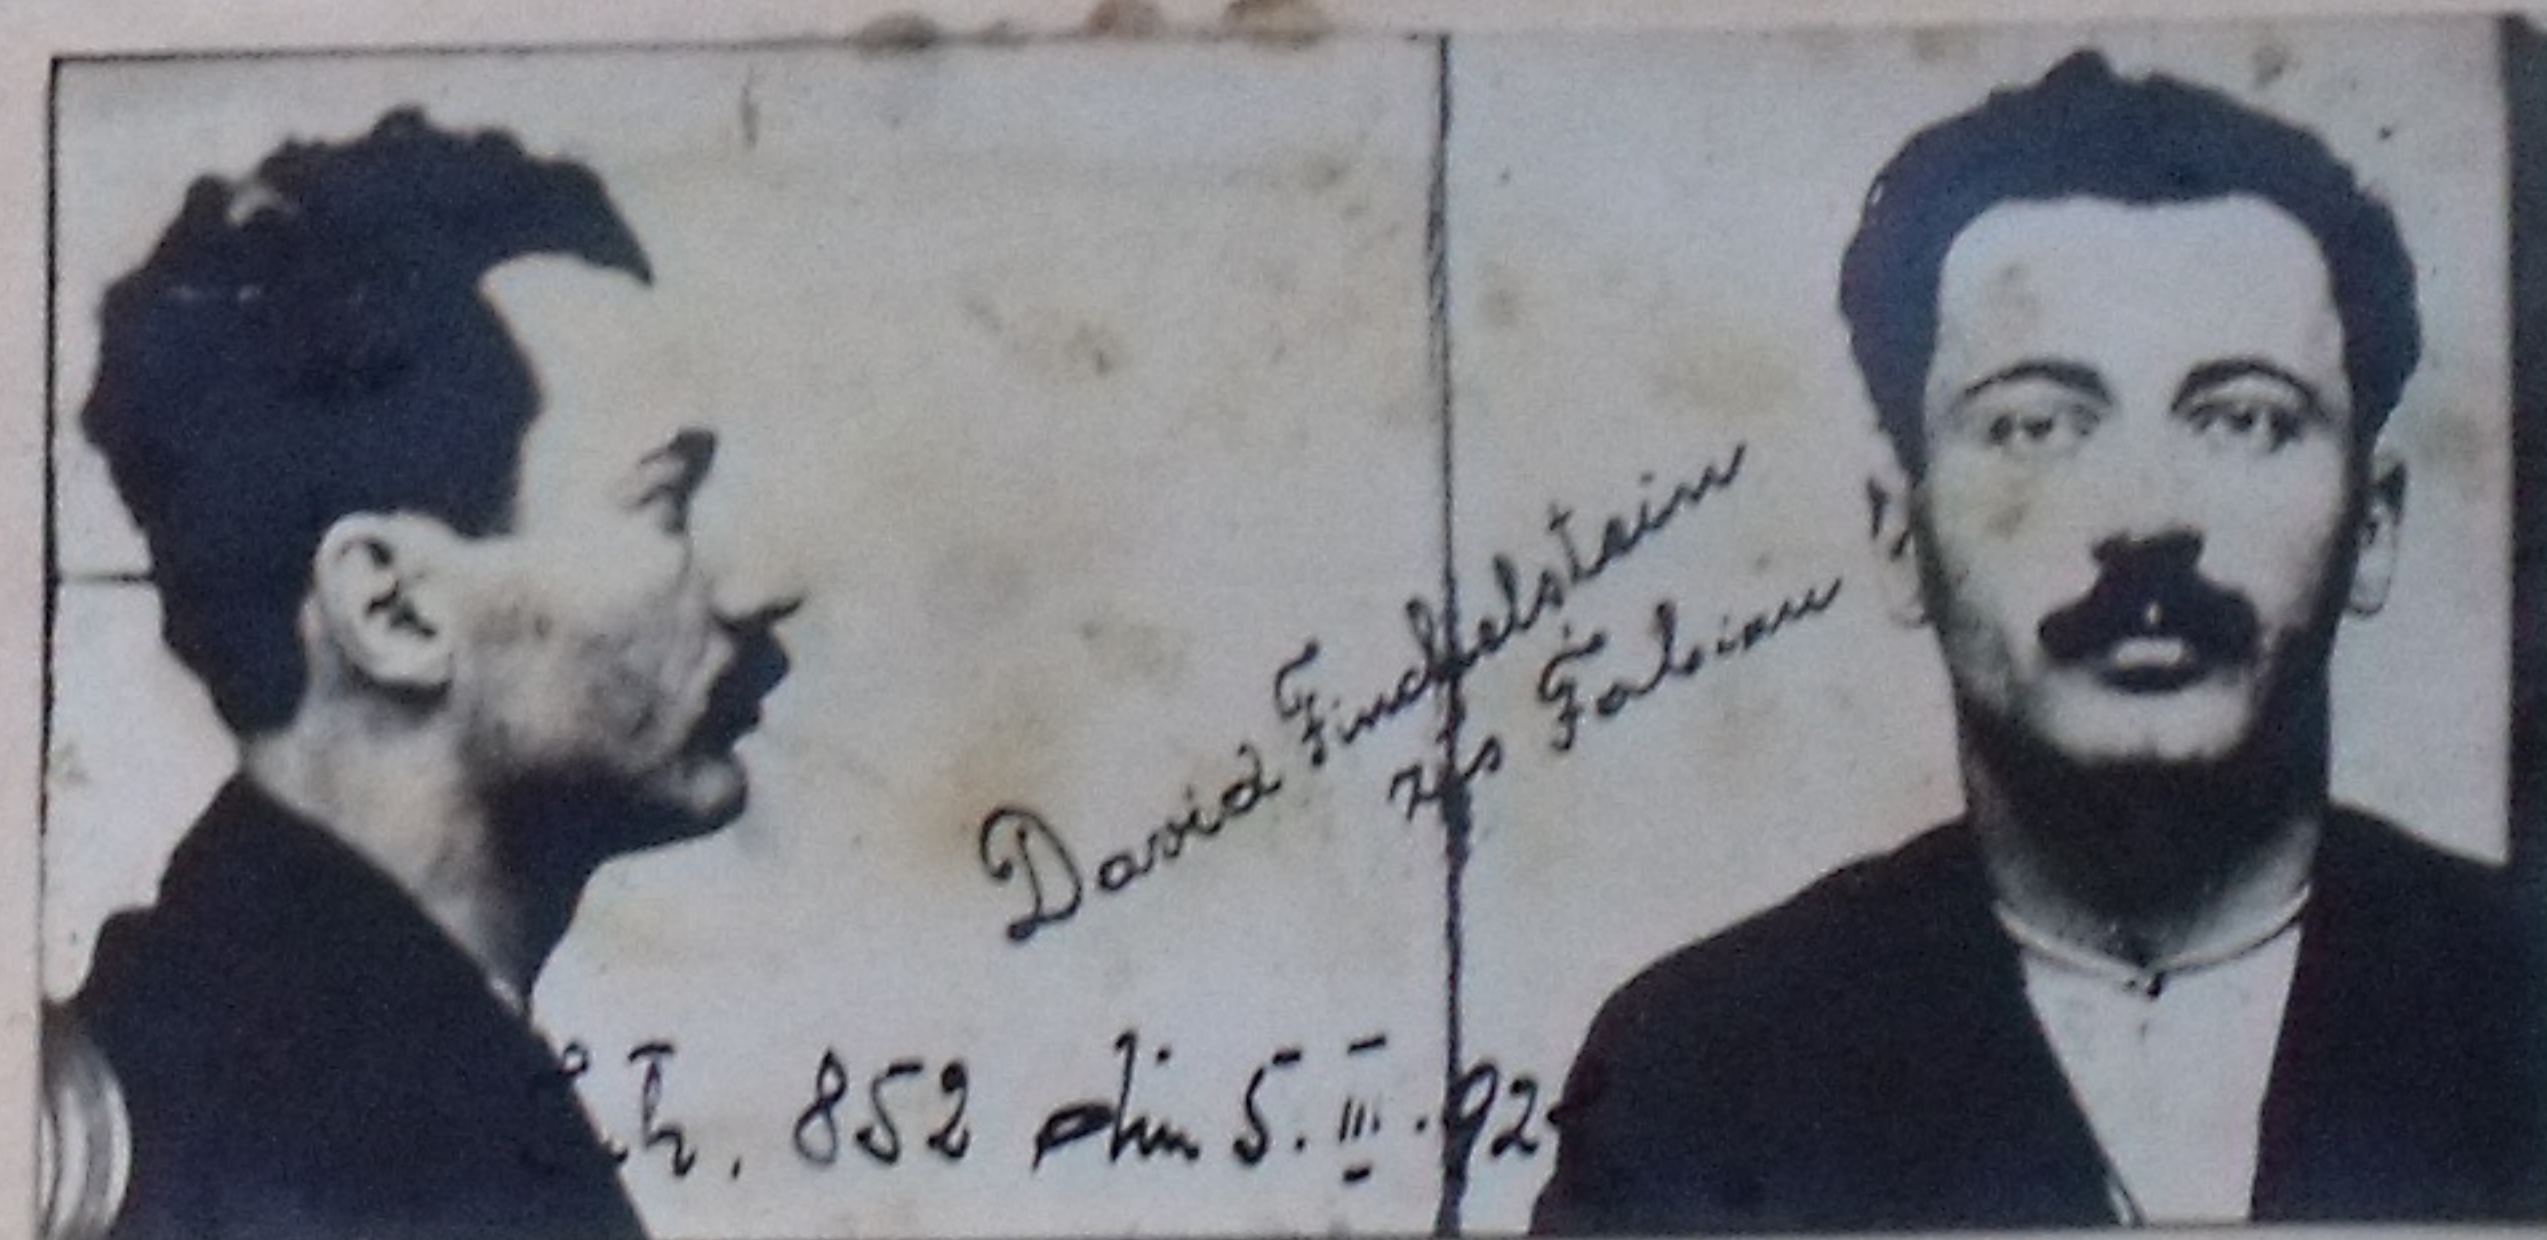 David Finchelstein
zis Fabian
852 din 5.III.92